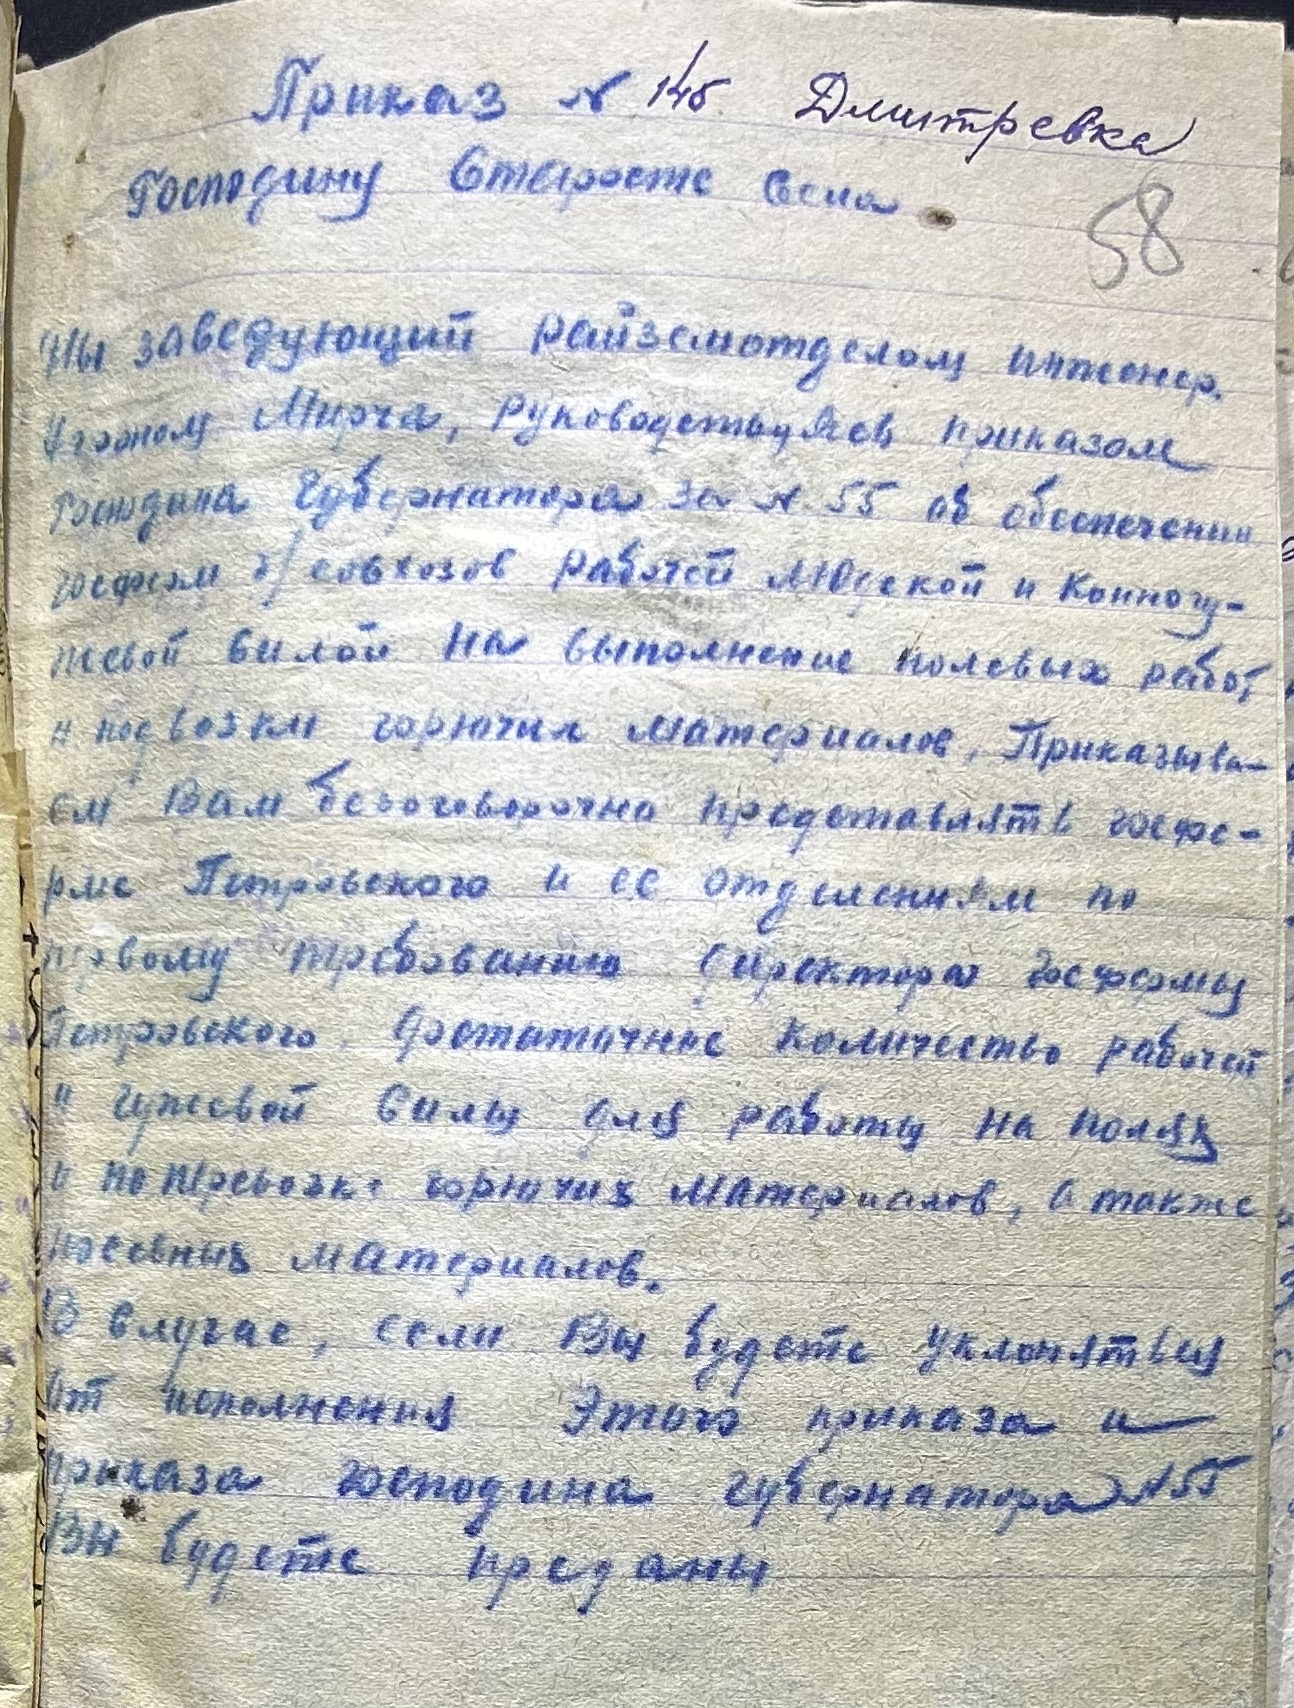 Приказ № 145. Дмитревка
Господину Старосте Села
58
Мы заведующий райземотделом инженер.
Агроном Мирча, руководствуясь приказом
Господина Губернатора за № 55 об обеспечении
госферм б/совхозов рабочей людской и конногу-
жевой силой на выполнение полевых работ
и подвозки горючих материалов, Приказыва-
ем Вам безоговорочно представлять госфе-
рме Петровского и ее отделениям по
первому требованию директора госфермы
Петровского. достаточное количество рабочей
и гужевой силы для работы на полях
и по перевозке горючих материалов, а также
посевных материалов.
В случае, если Вы будете уклоняться
от исполнения этого приказа и
приказа господина губернатора № 55
Вы будете преданы